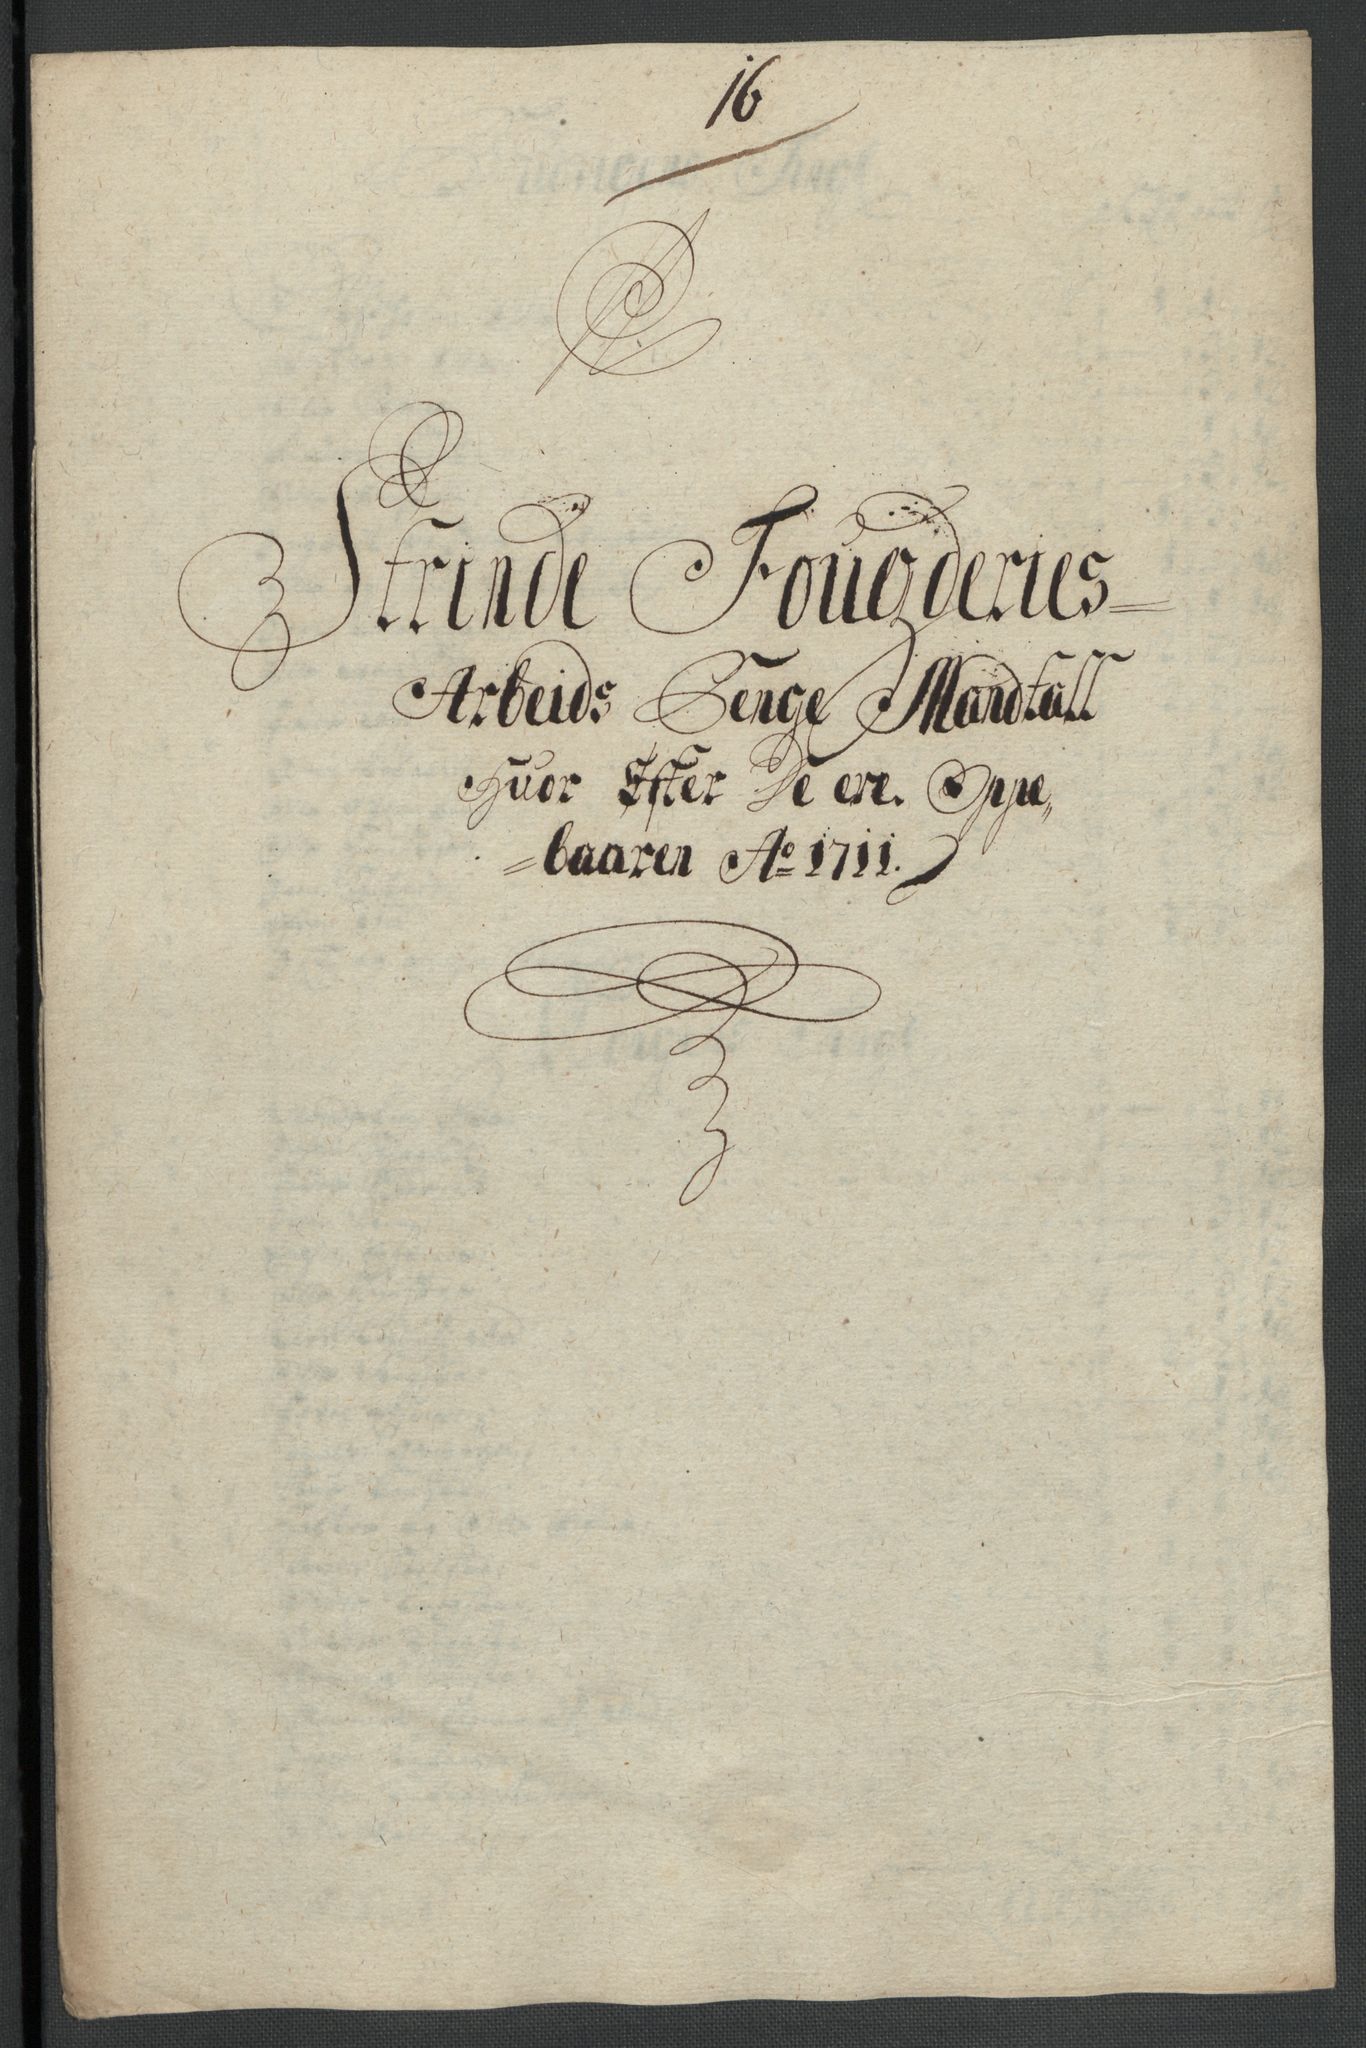 16
Strinde Fougderies
Arbeids Penge Mandtall
Huor Efter De ere Oppe
baaren Ao 1711.